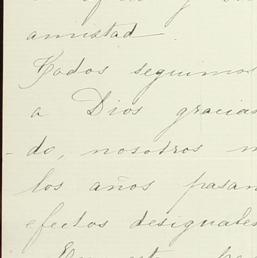 amistad.
Todos seguimos
a Dios gracias
do, nosotros
los años pasan
efectos desiguales